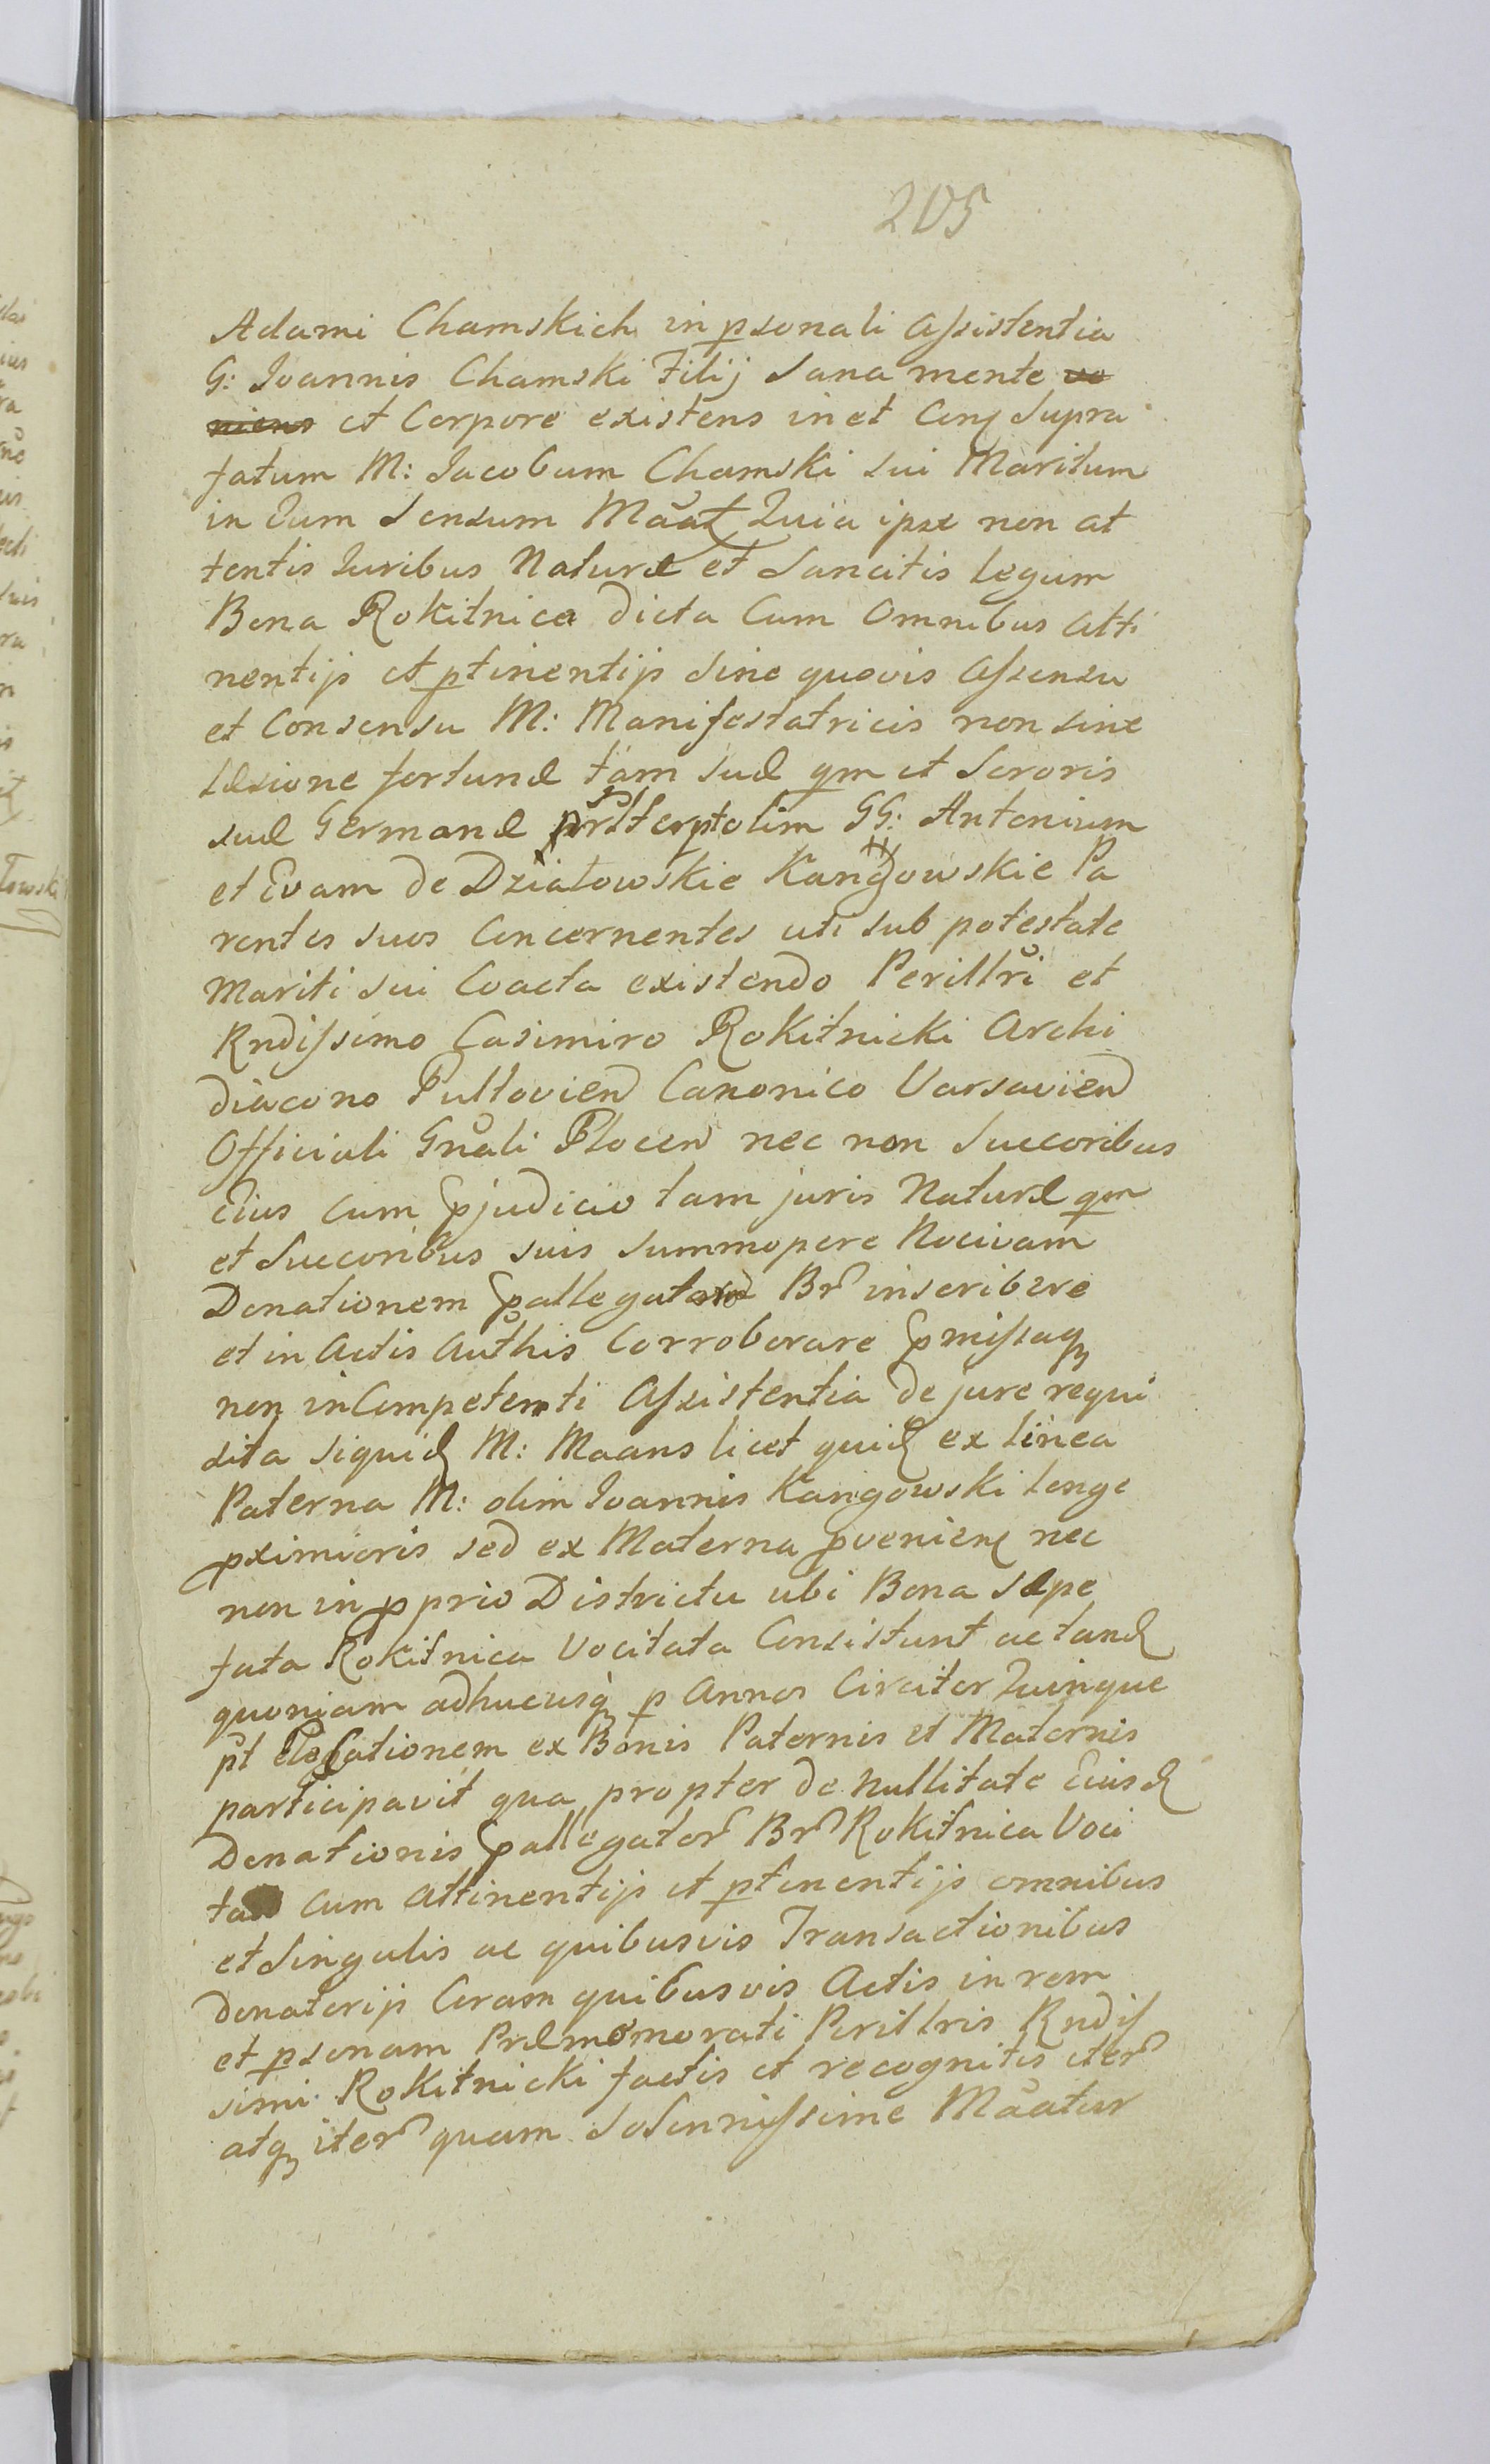 205
Adami Chamskich in psonali Assistentia
G: Joannis Chamski Filij Sana mente ve
niens et Corpore existens in et Conq Supra
fatum M: Jacobum Chamski sui Maritum
in Eum Sensum Maat Quia ipse non at
tentis Juribus Naturæ et Sancitis legum
Bona Rokitnica dicta Cum Omnibus Atti
nentijs et ptinentijs Sine quovis Assensu
et Consensu M: Manifestatricis non sine
Læsione fortunæ tam suæ qm et Sororis
suæ Germanæ olim GG: Antonium
et Evam de Dziatowskie Kangowskie Pa
rentes suos Concernentes uti sub potestate
Mariti sui Coacta existendo Perillri et
Rndissimo Casimiro Rokitnicki Archi
diacono Pultovien Canonico Varsavien
Officiali Gnali Plocen nec non Succoribus
Eius Cum pjudicio tam juris Naturæ qm
et Succoribus suis summopere Nocivam
Donationem pallegator Br inscribere
et in Actis Authis Corroborare pmissaq
non in Competenti Assistentia de jure requi
sita siquid M: Maans licet quid ex linea
Paterna M: olim Joannis Kangowski longe
pximioris sed ex Materna pvenien nec
non in pprio Districtu ubi Bona sæpe
fata Rokitnica Vocitata Consistunt ac tand
quoniam adhucusq p Annos Circiter Quinque
pt ationem ex Bonis Paternis et Maternis
participavit qua propter de Nullitate Eiusd
Donationis pallegator Br Rokitnica Voci
ta Cum Attinentijs et ptenentijs omnibus
et Singulis ac quibusvis Transactionibus
donatorijs Coram quibusvis Actis in rem
et psonam Præmemorati Perillris Rndis
simi Rokitnicki factis et recognitis iter
atq iter quam Solennissime Maatur